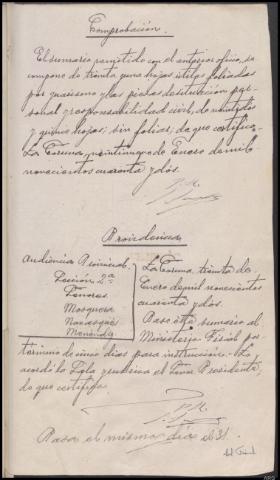 Comprobación.
El sumario remitido con el anterior oficio, se
compone de treinta y una hojas útiles foliadas
por guarismo y las piezas de situación per-
sonal y responsabilidad civil, de
y quince hojas, sin foliar, de que certifico.
La Coruña, veintinueve de Enero de mil
novecientos cuarenta y dos.
Providencia
Audiencia Provincial
Sección 2ª
Señores
Mosquera
La Coruña, treinta de
Enero de mil novecientos
cuarenta y dos.
Pase este sumario al
Ministerio Fiscal por
término de cinco días para instrucción. Lo
acordó la Sala y rubrica el Señor Presidente,
de que certifico
Pasa el mismo día el 31.